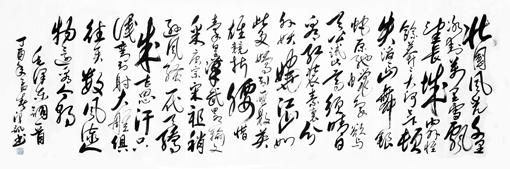 北国风光千里
冰封万里雪飘
望长城内外惟
余莽莽大河上下顿
失滔滔山舞银
蛇原驰蜡象欲与
天公试比高须晴日
看红装素裹分
外妖娆江山如
此多娇引无数英
雄竞折腰惜
秦皇汉武略输文
采唐宗宋祖稍
逊风骚一代天骄
成吉思汗只
识弯弓射大雕俱
往矣数风流人
物还看今朝
毛泽东词一首
丁酉年 书